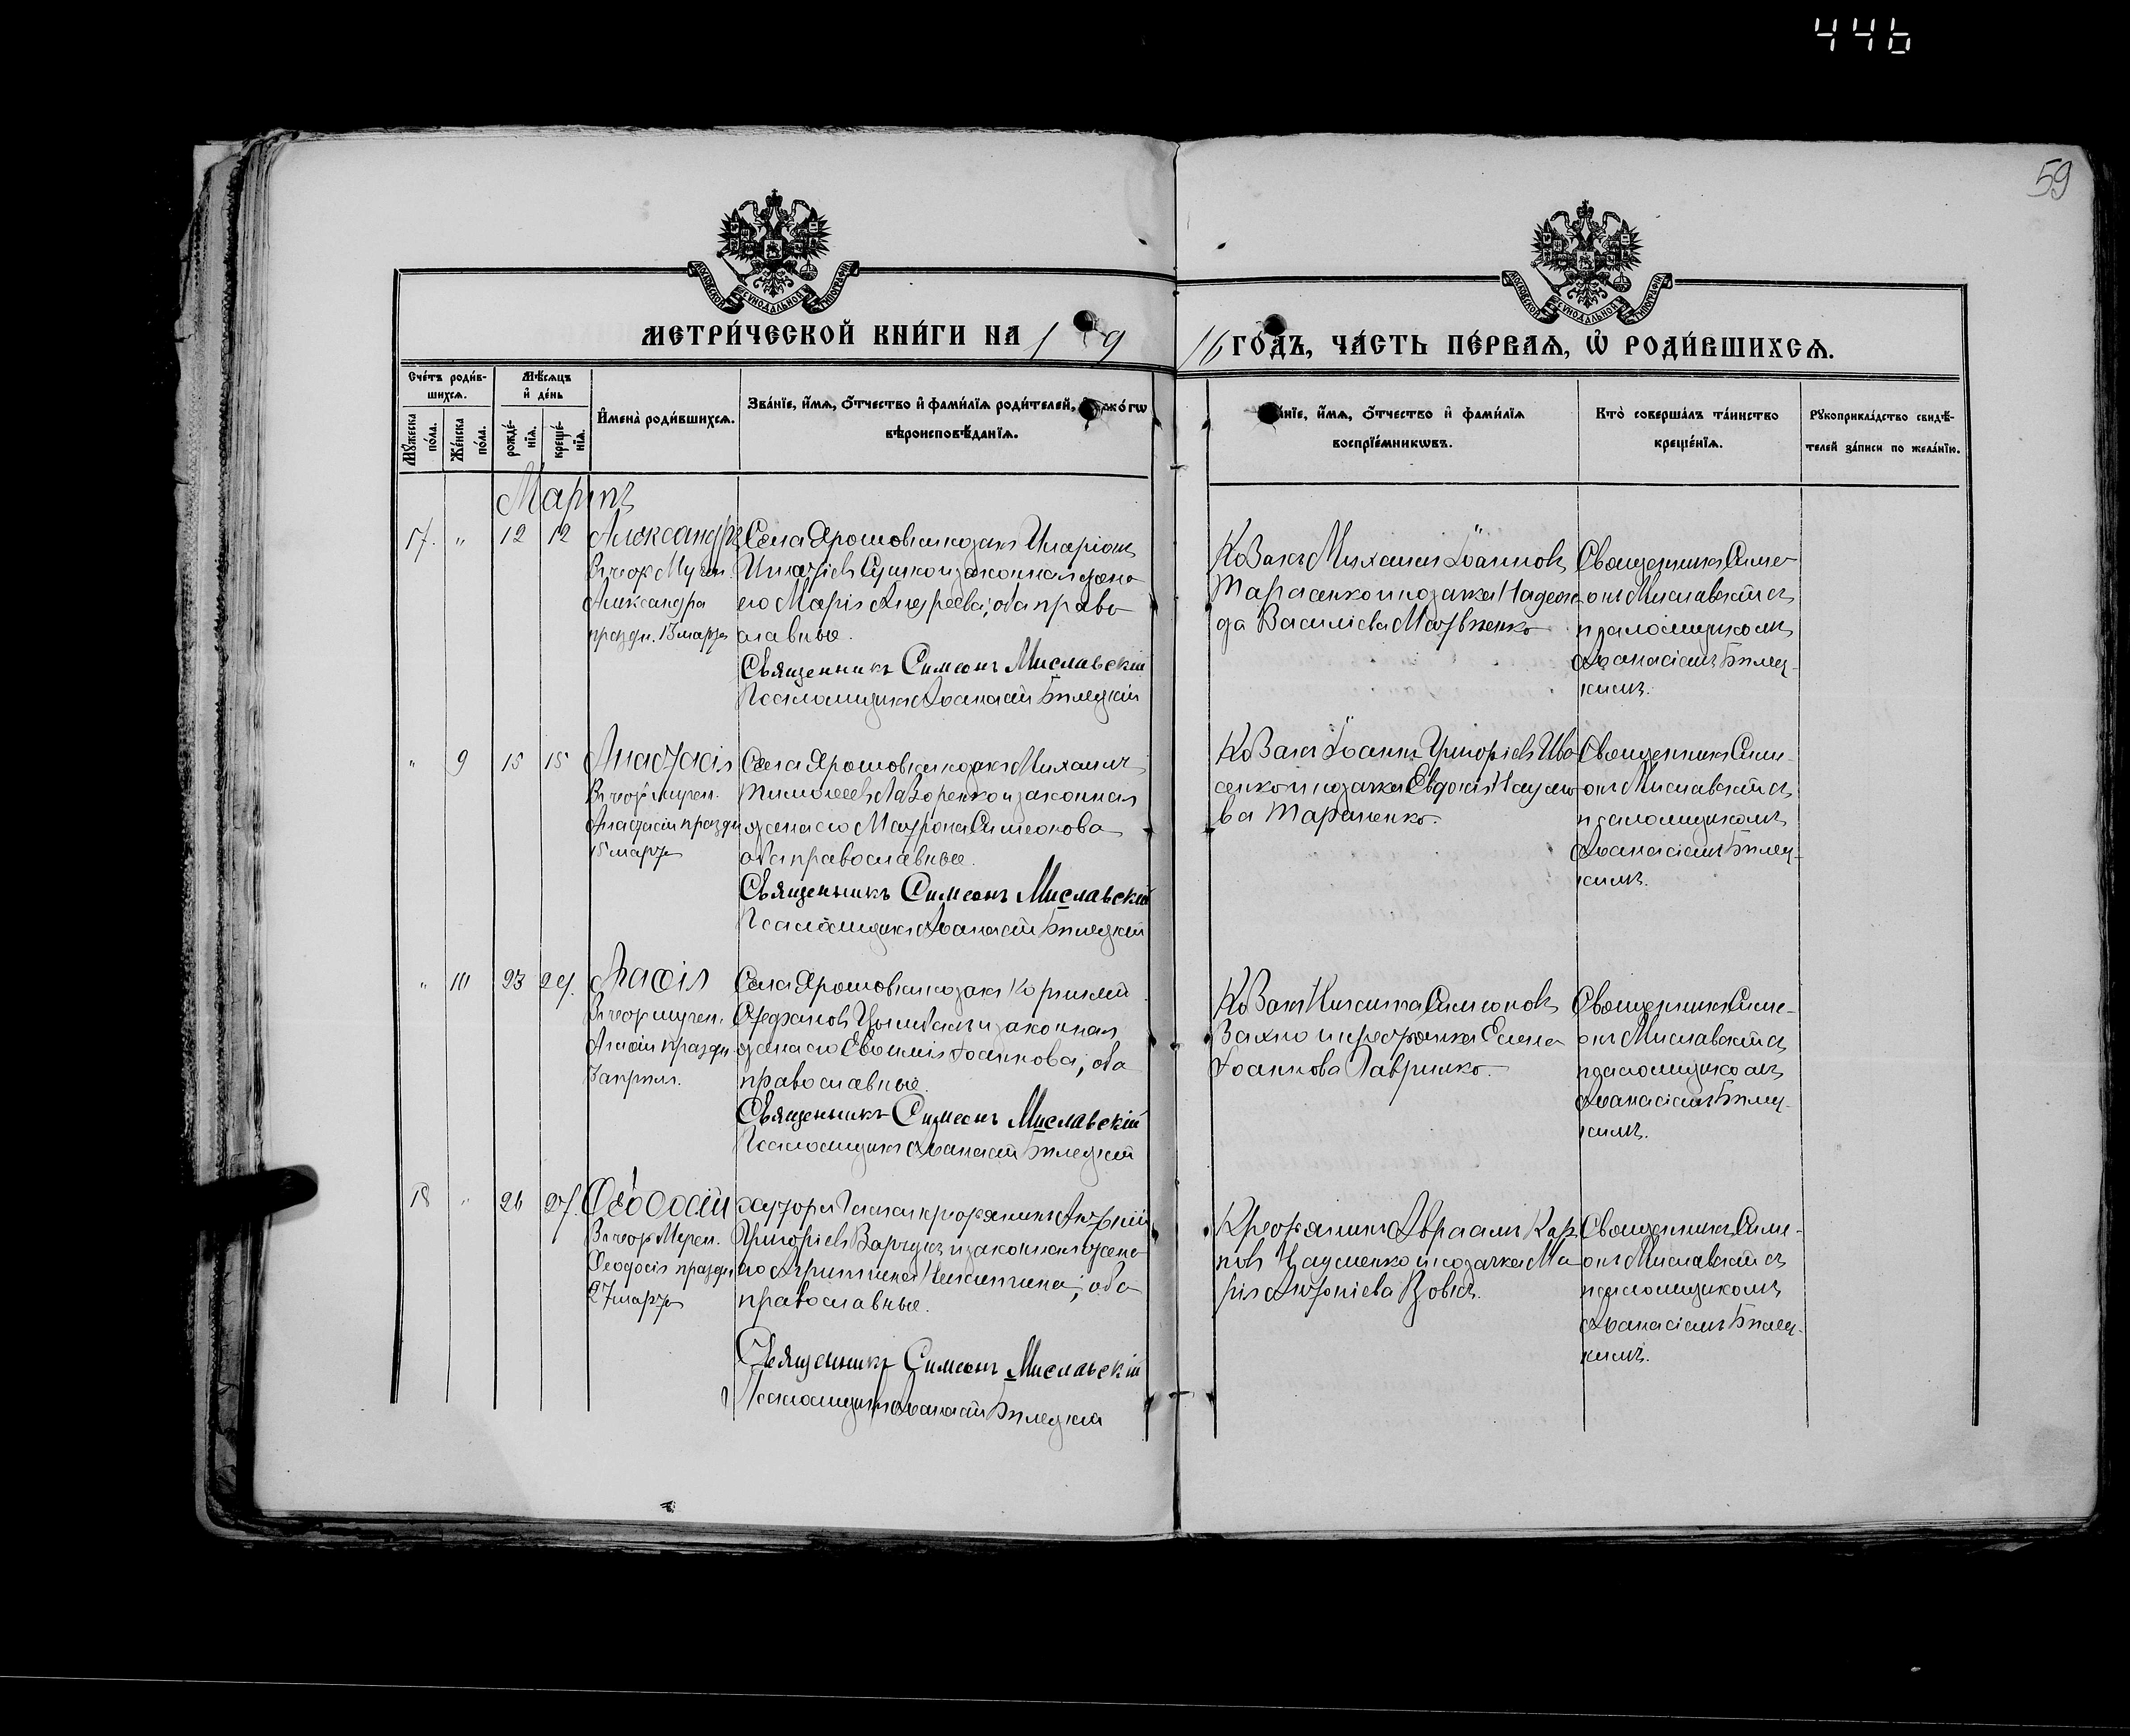 446
59
МОСКОВСКОЙ СѴНОДАЛЬНОЙ ТИПОГРАФІИ
МОСКОВСКОЙ СѴНОДАЛЬНОЙ ТИПОГРАФІИ
МЕТРИ́ЧЕСКОЙ КНИ́ГИ НА 19
16 ГО́ДЪ, ЧА́СТЬ ПЕ́РВАѦ, Ѡ РОДИ́ВШИХСѦ.
Сче́тъ роди́в-
шихсѧ.
Мꙋ́жеска по́ла.
Же́нска по́ла.
Мѣ́сѧцъ
и҆ де́нь
рожде́-
нїѧ.
креще́-
нїѧ.
И҆мена̀ роди́вшихсѧ.
Зва́нїе, и҆́мѧ, ѻ҆́тчество и҆ фами́лїѧ роди́телей,
вѣроисповѣ́данїѧ.
и҆́мѧ, ѻ҆́тчество и҆ фами́лїѧ
воспрїе́мникѡвъ.
Кто̀ соверша́лъ та́инство
креще́нїѧ.
Рꙋкоприкла́дство свидѣ́-
телей за́писи по жела́нїю.
Мартъ
17. " 12 12 Александръ
Въ честь Мучен.
Александра
праздн. 13 марта
Села Ярошовки козакъ Иларіонъ
Сушко и законная жена
его Марія Андреева; оба право
славные.
Священникъ Симеонъ Миславскій
Псаломщикъ Аѳанасій Билецкій
Козакъ Михаилъ Іоанновъ
Тарасенко и козачка Надеж
да Василіева Матвіенко
Священникъ Симе
онъ Миславскій съ
псаломщикомъ
Аѳанасіемъ Билец-
кимъ.
" 9 15 15 Анастасія
Въ честь мучен.
Анастасіи праздн
15 марта
Села Ярошовки козакъ Михаилъ
Тимоѳеевъ Лазоренко и законная
жена его Матрона Симеонова
оба православные.
Священникъ Симеонъ Миславскій
Псаломщикъ Аѳанасій Билецкій
Козакъ Іоаннъ Григоріевъ Ива
сенко и козачка Евдокія Наумо
ва Тараненко.
Священникъ Симе-
онъ Миславскій съ
псаломщикомъ
Аѳанасіемъ Билец-
кимъ.
" 10 23 24. Агаѳія
Въ честь мучен.
праздн.
апрѣля.
Села Ярошовки козакъ Корнилій
Стефановъ Цымбалъ и законная
жена его Евѳимія Іоаннова; оба
православные.
Священникъ Симеонъ Миславскій
Псаломщикъ Аѳанасій Билецкій
Козакъ Никита Симеоновъ
Вахно и крестьянка Елена
Іоаннова Гаврилко.
Священникъ Симе-
онъ Миславскій съ
псаломщикомъ
Аѳанасіемъ Билец-
кимъ.
18 " 26 27. Ѳеодосій
Въ честь
Ѳеодосія праздн
27 марта
хутора крестьянинъ Антоній
Григоріевъ и законная жена
его Агриппина Никитина; оба
православные.
Священникъ Симеонъ Миславскій
Псаломщикъ Аѳанасій Билецкій
Крестьянинъ Авраамъ Кар
повъ Науменко и козачка Ма
рія Антоніева
Священникъ Симе-
онъ Миславскій съ
псаломщикомъ
Аѳанасіемъ Билец-
кимъ.